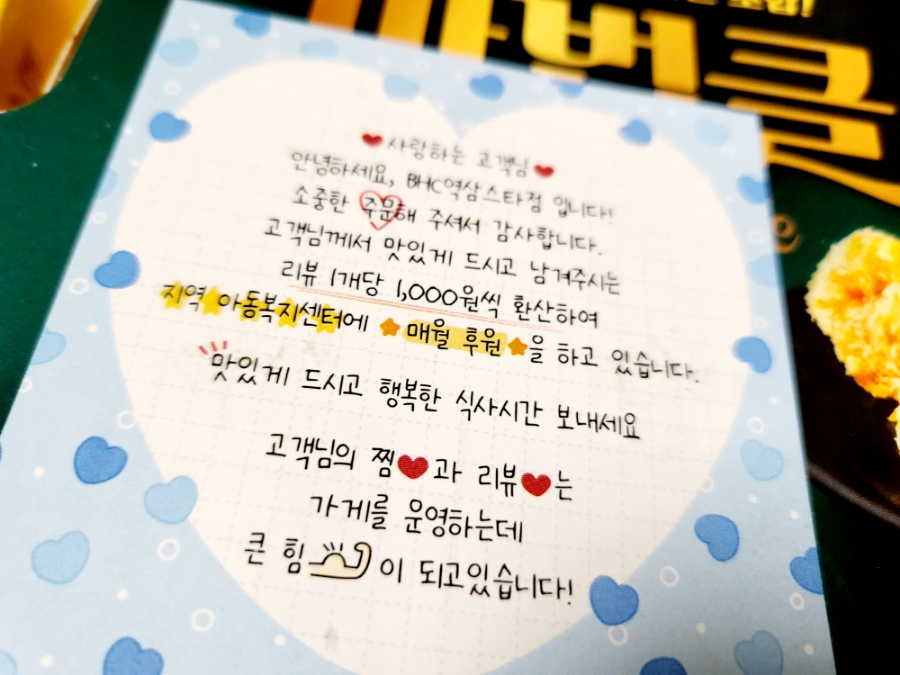 사랑하는 고객님
안녕하세요, BHC역삼스타점 입니다!
소중한 주문해 주셔서 감사합니다.
고객님께서 맛있게 드시고 남겨주시는
리뷰 1개당 1,000원씩 환산하여
지역 아동복지센터에 매월 후원을 하고 있습니다.
맛있게 드시고 행복한 식사시간 보내세요
고객님의 찜과 리뷰는
가게를 운영하는데
큰 힘이 되고있습니다!